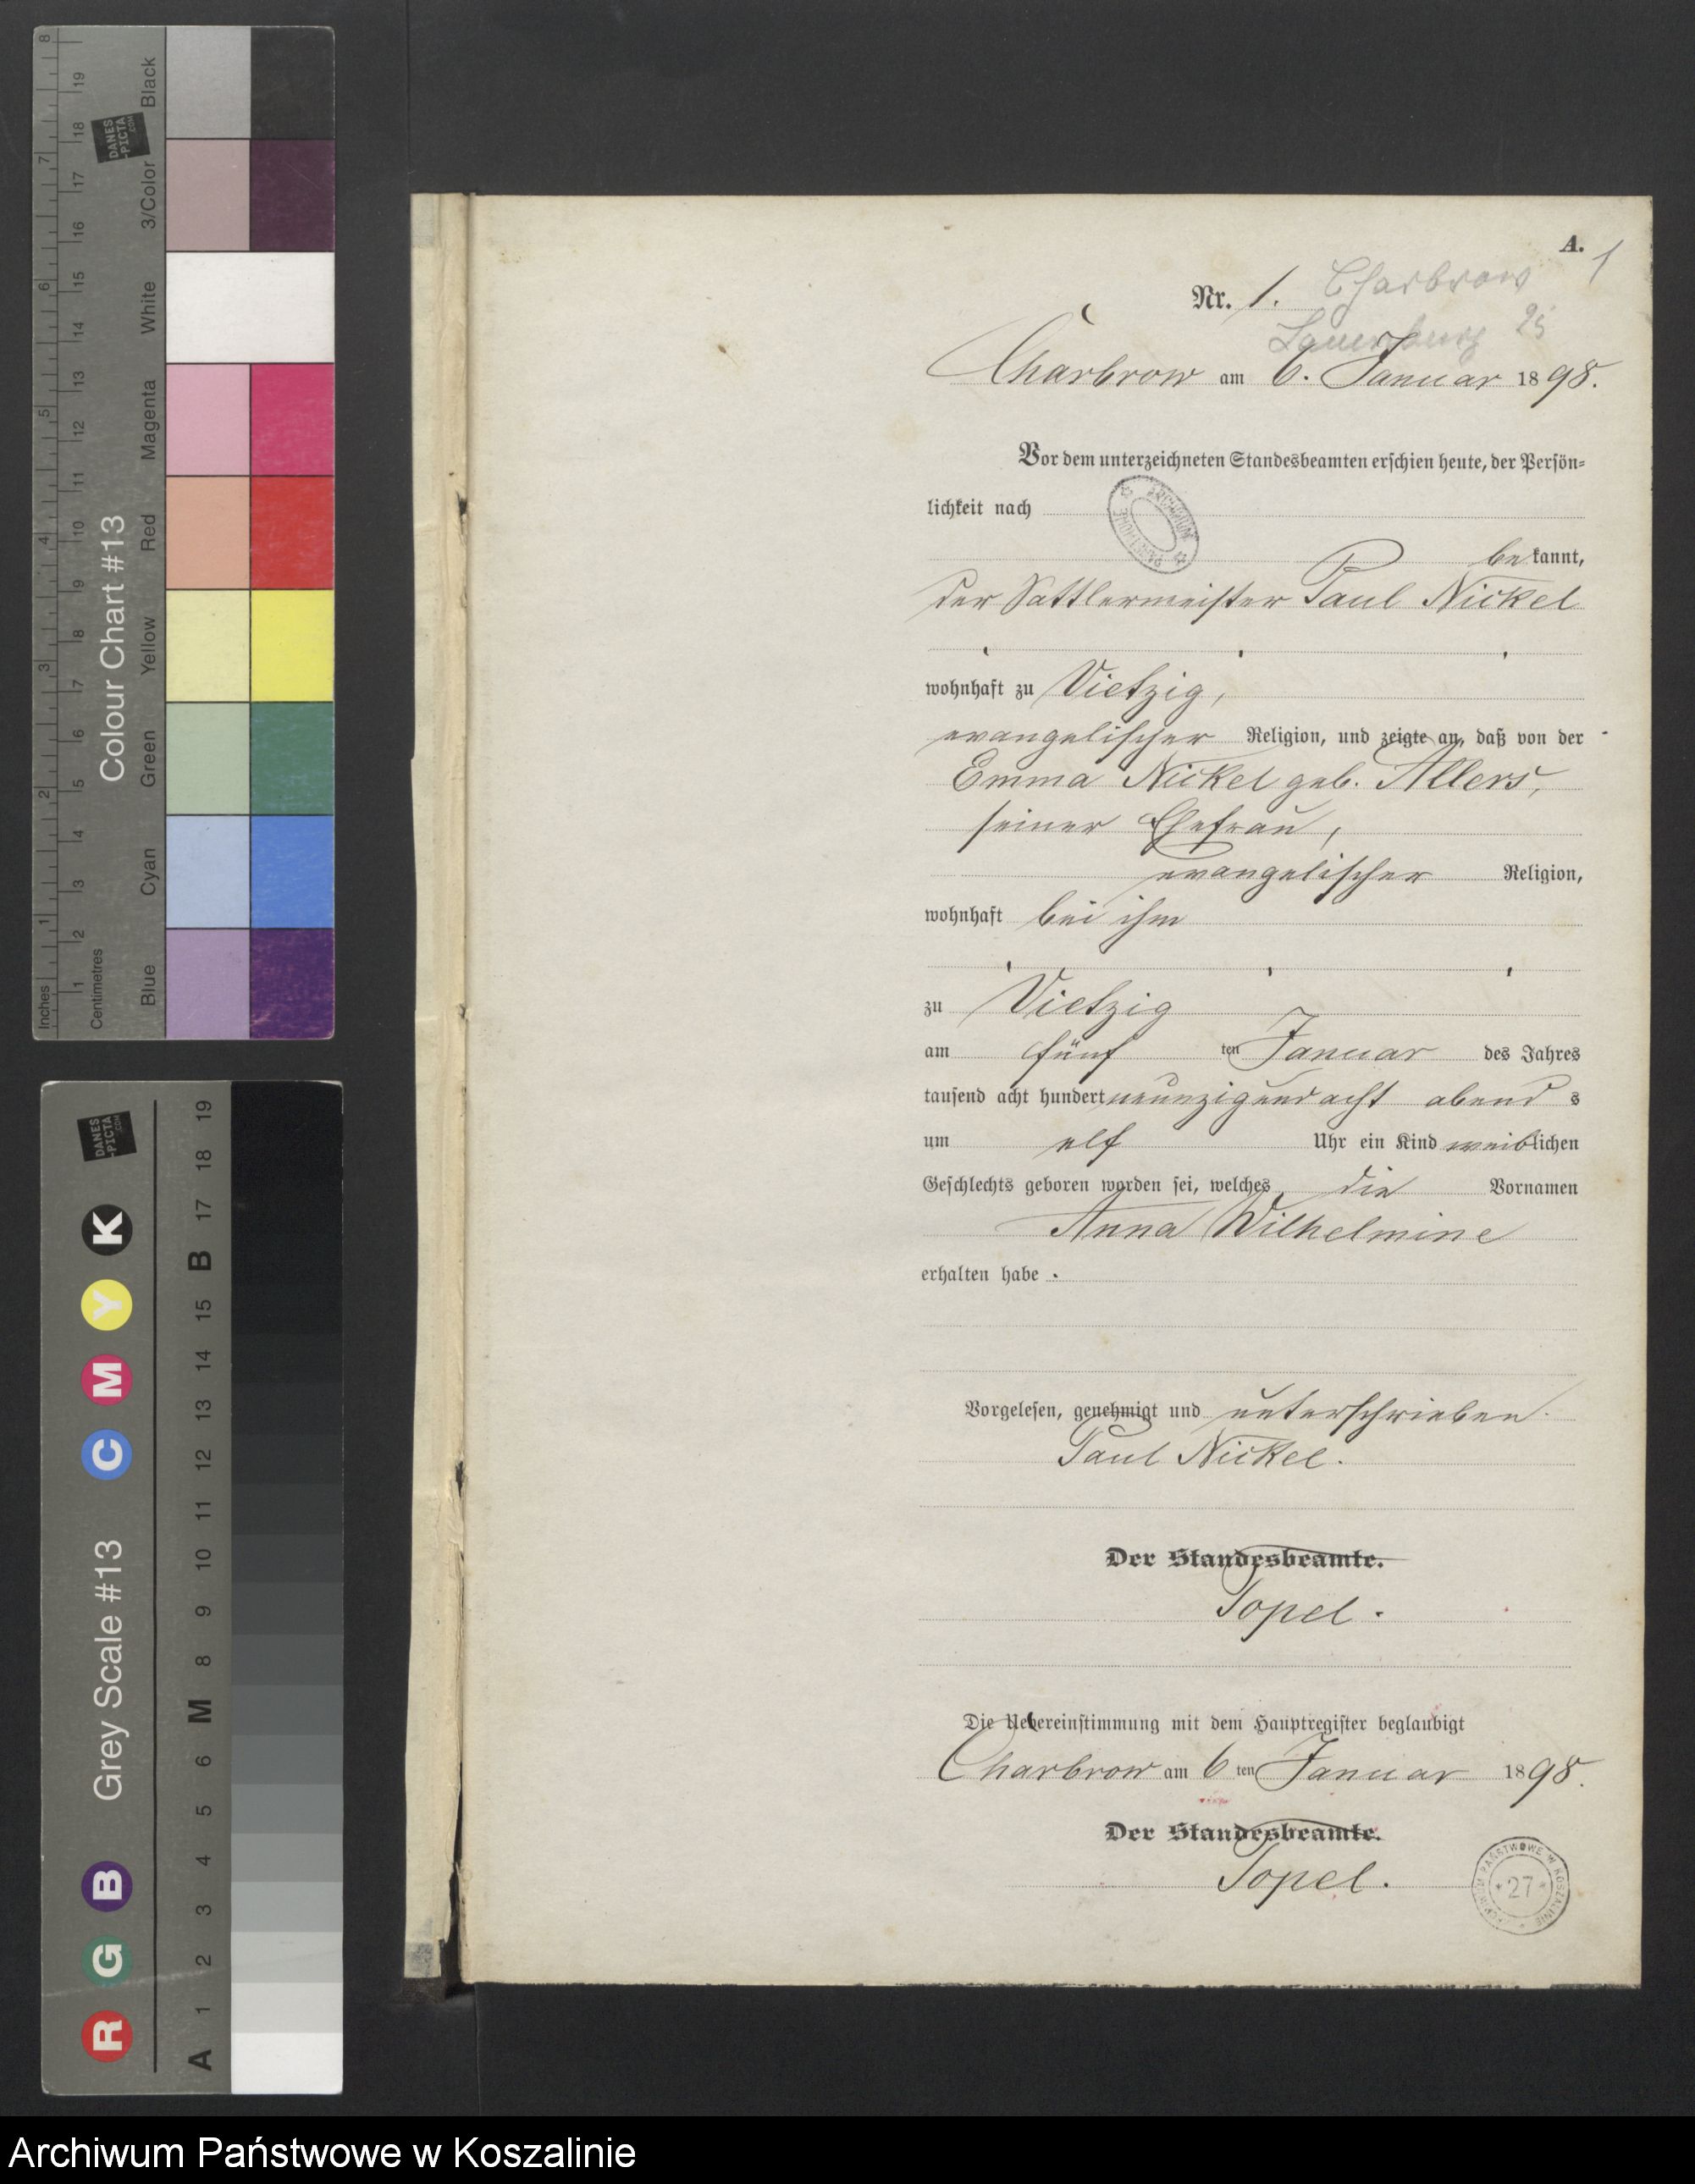 A.
1
Nr. 1.
Charbrow
Lauenburg 25
Charbrow am 6. Januar 1898.
Vor dem unterzeichneten Standesbeamten erschien heute, der Persön-
lichkeit nach
bekannt,
der Sattlermeister Paul Nickel
wohnhaft zu Vietzig,
evangelischer Religion, und zeigte an, daß von der
Emma Nickel geb. Allers,
seiner Ehefrau,
evangelischer Religion,
wohnhaft bei ihm
zu Vietzig
am fünf ten Januar des Jahres
tausend acht hundert neunzigundacht abends
um elf Uhr ein Kind weiblichen
Geschlechts geboren worden sei, welches die Vornamen
Anna Wilhelmine
erhalten habe.
Vorgelesen, genehmigt und unterschrieben.
Paul Nickel.
Der Standesbeamte.
Topel.
Die Uebereinstimmung mit dem Hauptregister beglaubigt
Charbrow am 6ten Januar 1898.
Der Standesbeamte.
Topel.
ARCHIWUM PAŃSTWOWE W KOSZALINIE
* 27 *
Colour Chart #13
Black
3/Color
White
Magenta
Red
Yellow
Green
Cyan
Blue
Inches
1 2 3 4 5 6 7 8
Centimetres
1 2 3 4 5 6 7 8 9 10 11 12 13 14 15 16 17 18 19
DANES
-PICTA
.COM
Grey Scale #13
R G B C M Y K
A 1 2 3 4 5 6 M 8 9 10 11 12 13 14 15 B 17 18 19
DANES
-PICTA
.COM
Archiwum Państwowe w Koszalinie